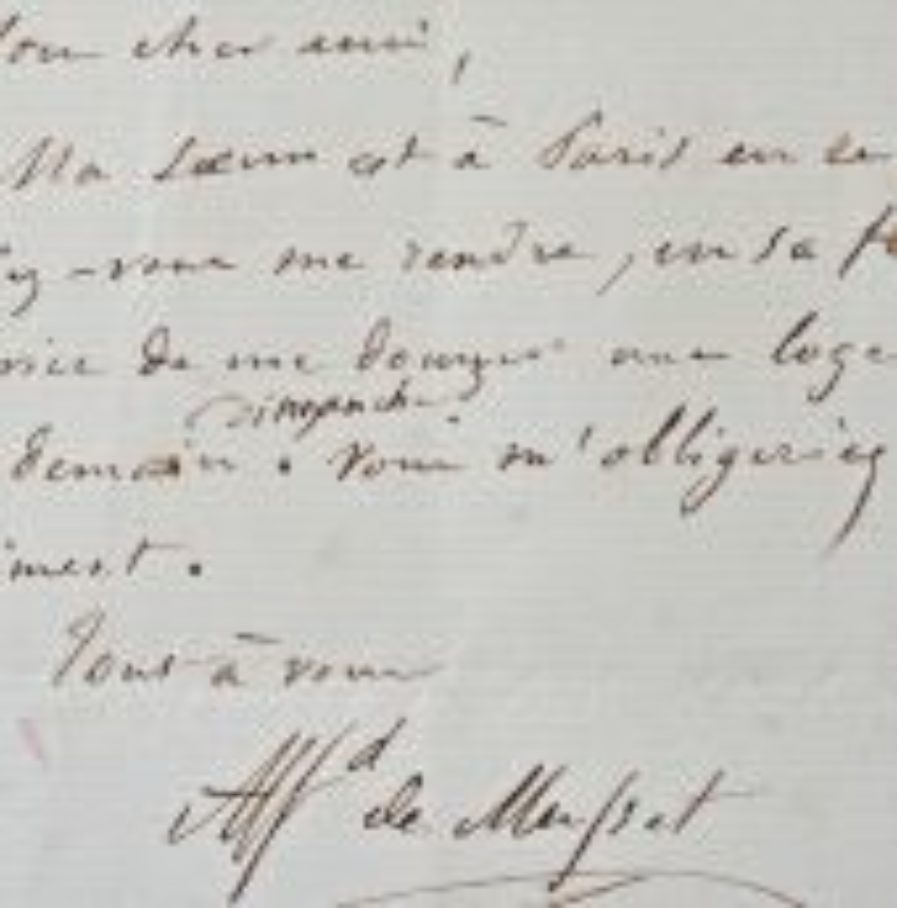 Mon cher ami,
Ma sœur est à Paris en ce
ez-vous me rendre, en sa
vice de me donner une loge
dimanche
demain. Vous m'obligeriez
iment.
Tout à vous
Alfd de Musset